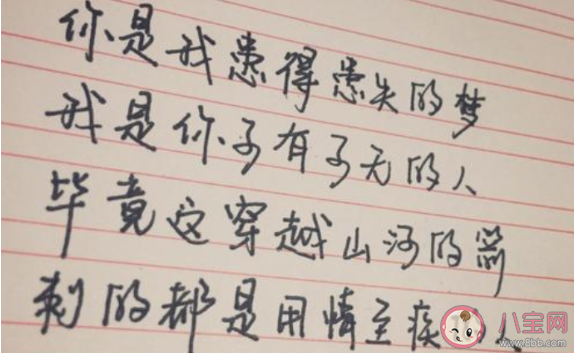 你是我患得患失的梦
我是你子有子无的人
毕竟这穿越山河的箭
刺的都是用情至疾
八宝网
www.8bb.com